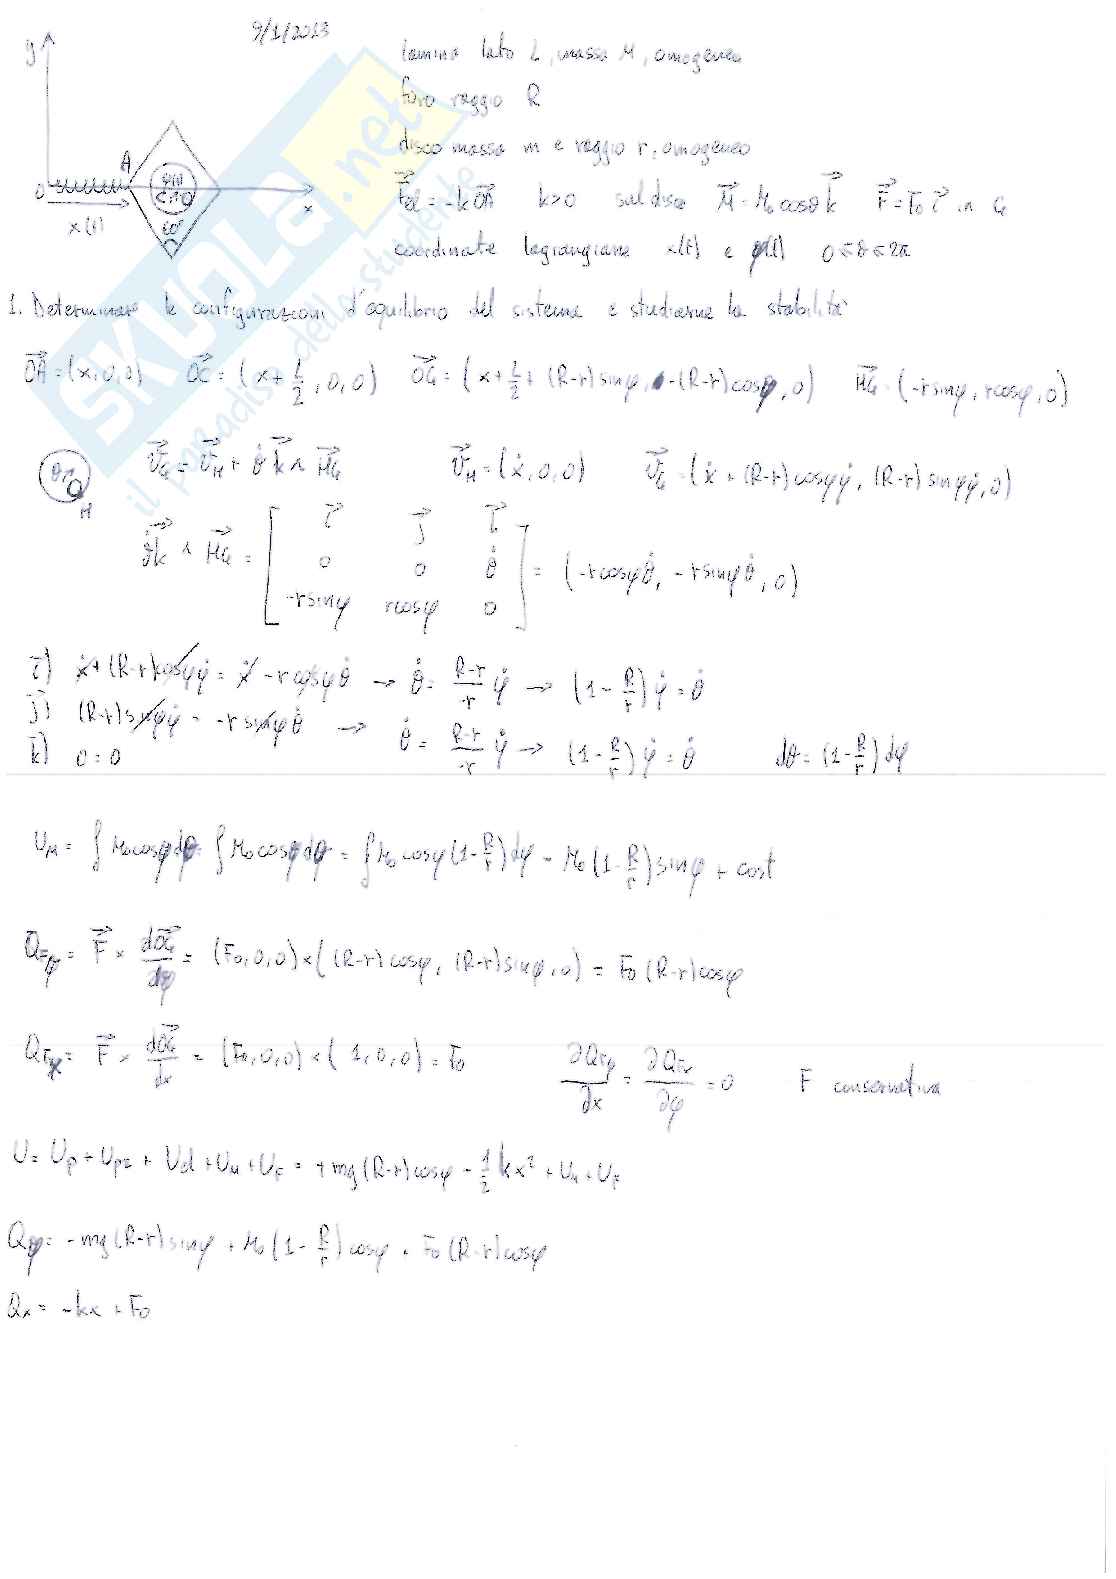 9/1/2013
lamina lato L, massa M, omogenea
foro raggio R
disco massa m e raggio r, omogeneo
y
A
O
x
x(t)
φ(t)
60°
F⃗el = -k O⃗A k>0 sul disco M⃗ = M₀ cosϑ k⃗ F⃗ = F₀ i⃗ in G
coordinate lagrangiane x(t) e φ(t) 0≤ϑ≤2π
1. Determinare le configurazioni d'equilibrio del sistema e studiarne la stabilità
O⃗A = (x, 0, 0) O⃗C = (x + L/2, 0, 0) O⃗G = (x + L/2 + (R-r) sinφ, -(R-r) cosφ, 0) H⃗G = (-r sinφ, r cosφ, 0)
H
v⃗G = v⃗H + ϑ̇ k⃗ ∧ H⃗G v⃗H = (ẋ, 0, 0) v⃗G = (ẋ + (R-r) cosφ φ̇, (R-r) sinφ φ̇, 0)
ϑ̇ k⃗ ∧ H⃗G = [ i⃗ j⃗ k⃗
0 0 ϑ̇
-r sinφ r cosφ 0 ] = (-r cosφ ϑ̇, -r sinφ ϑ̇, 0)
i⃗) ẋ + (R-r) cosφ φ̇ = ẋ - r cosφ ϑ̇ → ϑ̇ = (R-r)/(-r) φ̇ → (1 - R/r) φ̇ = ϑ̇
j⃗) (R-r) sinφ φ̇ = -r sinφ ϑ̇ → ϑ̇ = (R-r)/(-r) φ̇ → (1 - R/r) φ̇ = ϑ̇ dϑ = (1 - R/r) dφ
k⃗) 0 = 0
U_M = ∫ M₀ cosφ dϑ = ∫ M₀ cosφ dϑ = ∫ M₀ cosφ (1 - R/r) dφ = M₀ (1 - R/r) sinφ + cost
Q_Fφ = F⃗ × dO⃗G/dφ = (F₀, 0, 0) × ((R-r) cosφ, (R-r) sinφ, 0) = F₀ (R-r) cosφ
Q_Fx = F⃗ × dO⃗G/dx = (F₀, 0, 0) × (1, 0, 0) = F₀ ∂Q_Fφ/∂x = ∂Q_Fx/∂φ = 0 F conservativa
U = U_p + U_p2 + U_el + U_M + U_F = + mg (R-r) cosφ - 1/2 k x² + U_M + U_F
Q_φ = -mg (R-r) sinφ + M₀ (1 - R/r) cosφ + F₀ (R-r) cosφ
Q_x = -kx + F₀
SKUOLA.net
il paradiso dello studente